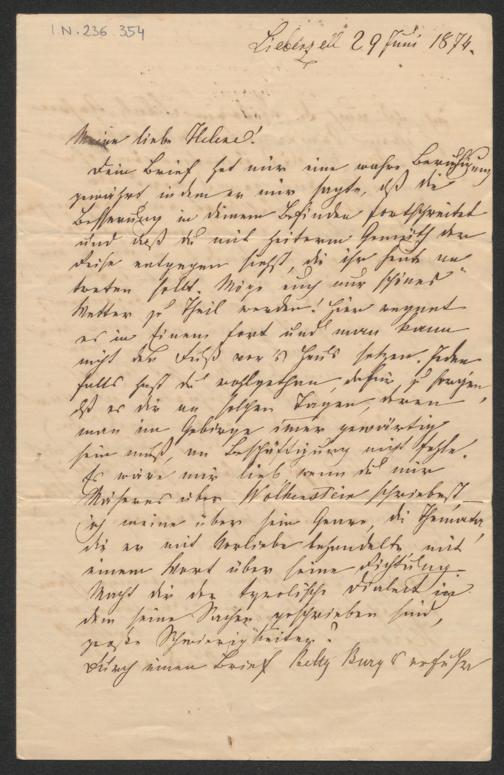 I.N. 236.354
Liebenzell 29 Juni 1874.
Meine liebe Helene!
Dein Brief hat mir eine wahre Beruhigung
gewährt indem er mir sagte, daß die
Besserung in deinem Befinden fortschreitet
und daß du mit heiterm Gemüth der
Reise entgegen siehst, die ihr heut an
treten sollt. Möge euch nur schönes
Wetter zu Theil werden! Hier regnet
es in Einem fort und man kann
nicht den Fuß vor's Haus setzen. Jeden
falls hast du wohlgethan, dafür zu sorgen,
daß es dir an solchen Tagen, deren
man im Gebirge immer gewärtig
sein muß, an Beschäftigung nicht fehle.
Es wäre mir lieb wenn du mir
Näheres über Wolkenstein schriebest,
ich meine über sein Genre, die Themata,
die er mit Vorliebe behandelte mit
einem Wort über seine Richtung.
Macht dir der tyrolische Dialect in
dem seine Sachen geschrieben sind,
große Schwierigkeiten?
Durch einen Brief Betty Burg's erfuhr